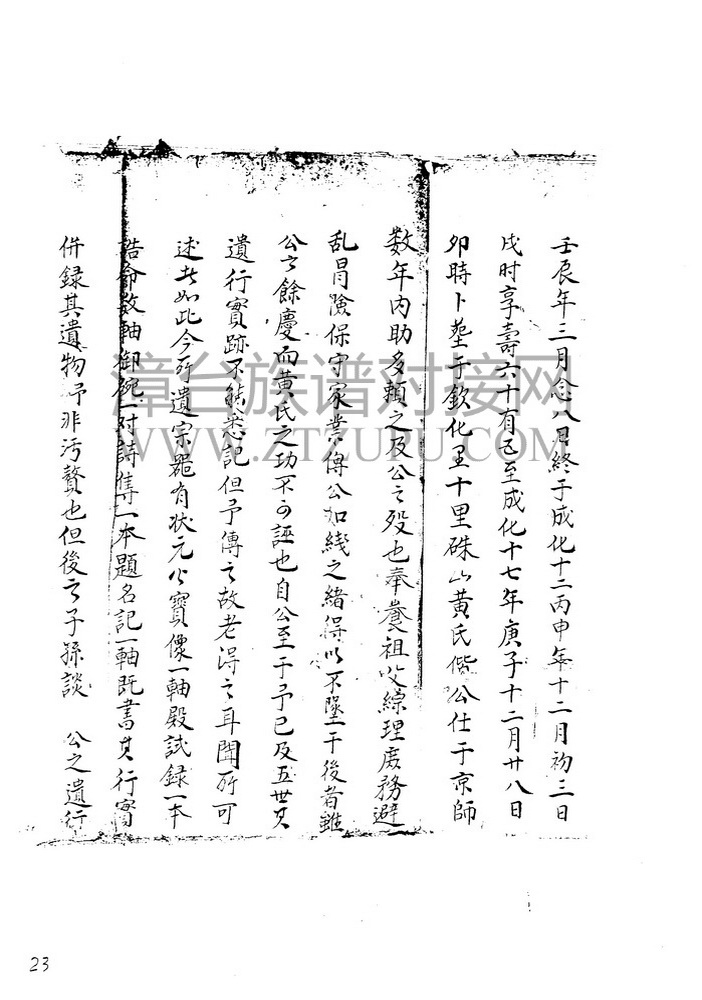 壬辰年三月念八日終于成化十二丙申年十二月初三日
戌时享壽六十有五至成化十七年庚子十二月廿八日
卯時卜塟于欽化里十里硃山黃氏偕公仕于京師
数年内助多賴之及公之殁也奉養祖父綜理庶務避
乱冐險保守家貲傳公如綫之緒得以不墜于後者雖
公之餘慶而黃氏之功不可誣也自公至于予已及五世其
遺行實跡不能悉記但予傳之故老得之耳聞所可
述者如此今所遺宗器有状元公寳像一軸殿試録一本
誥命数軸御硯一对詩集一本題名記一軸既書其行實
併録其遺物呼非污贅也但後之子孫談 公之遺行
漳台族谱对接网
WWW.ZTZUPU.COM
23